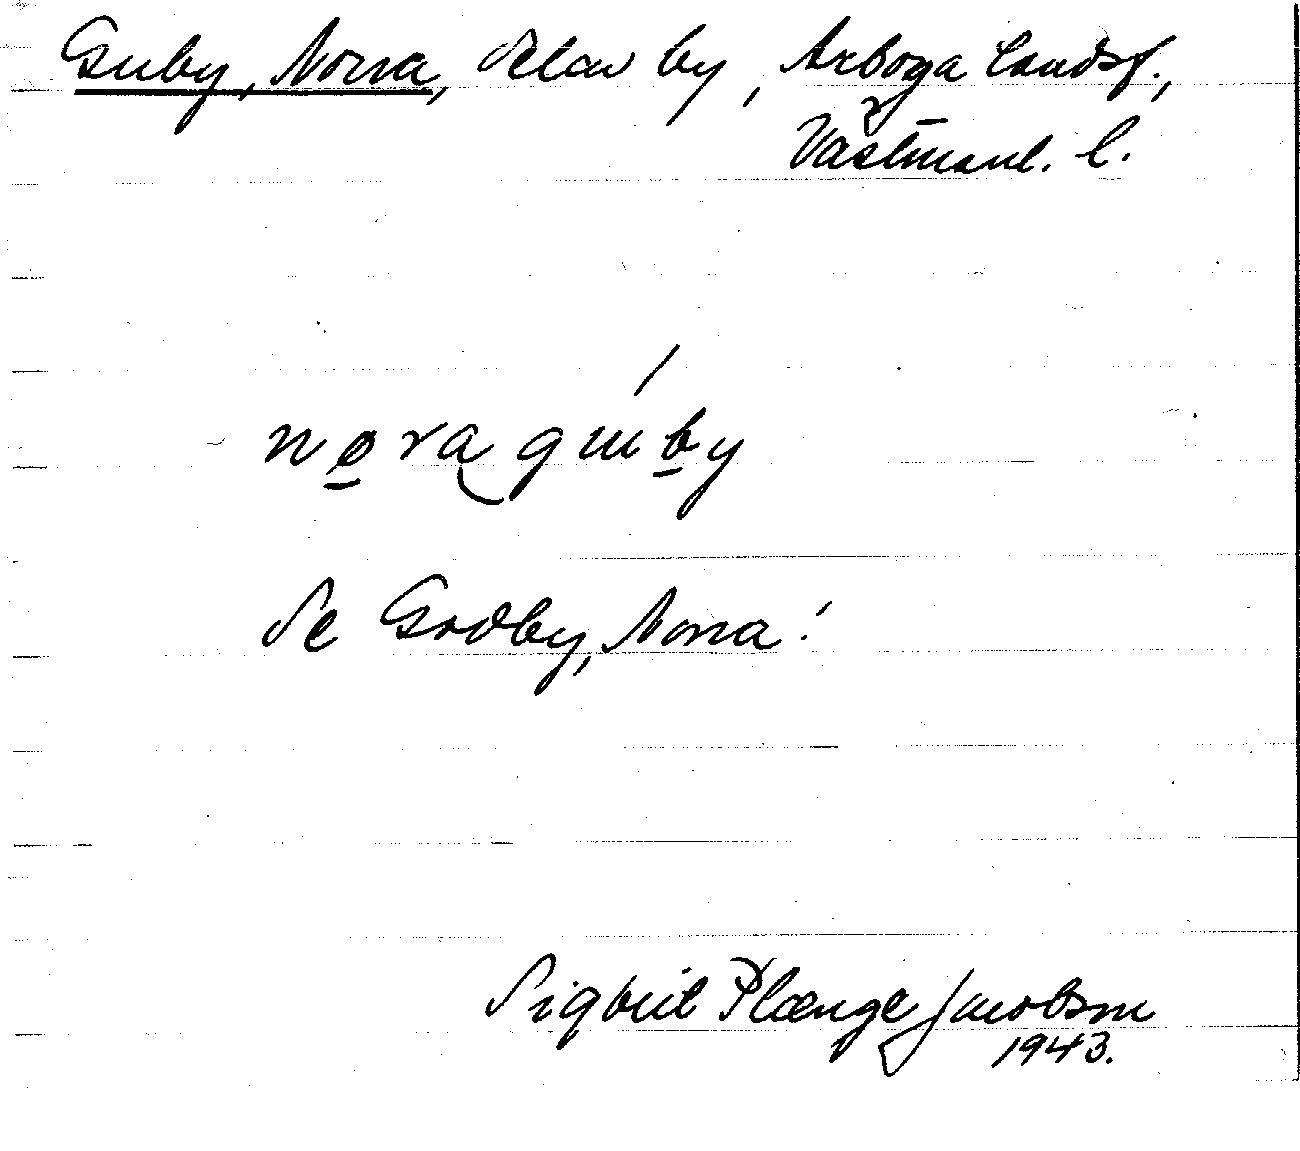 Guby, Norra, del av by, Arboga landsf.,
Västmanl. l.
nø̱ra gu̍ḇy
Se Godby, Norra!
Sigbrit Plænge Jacobson
1943.